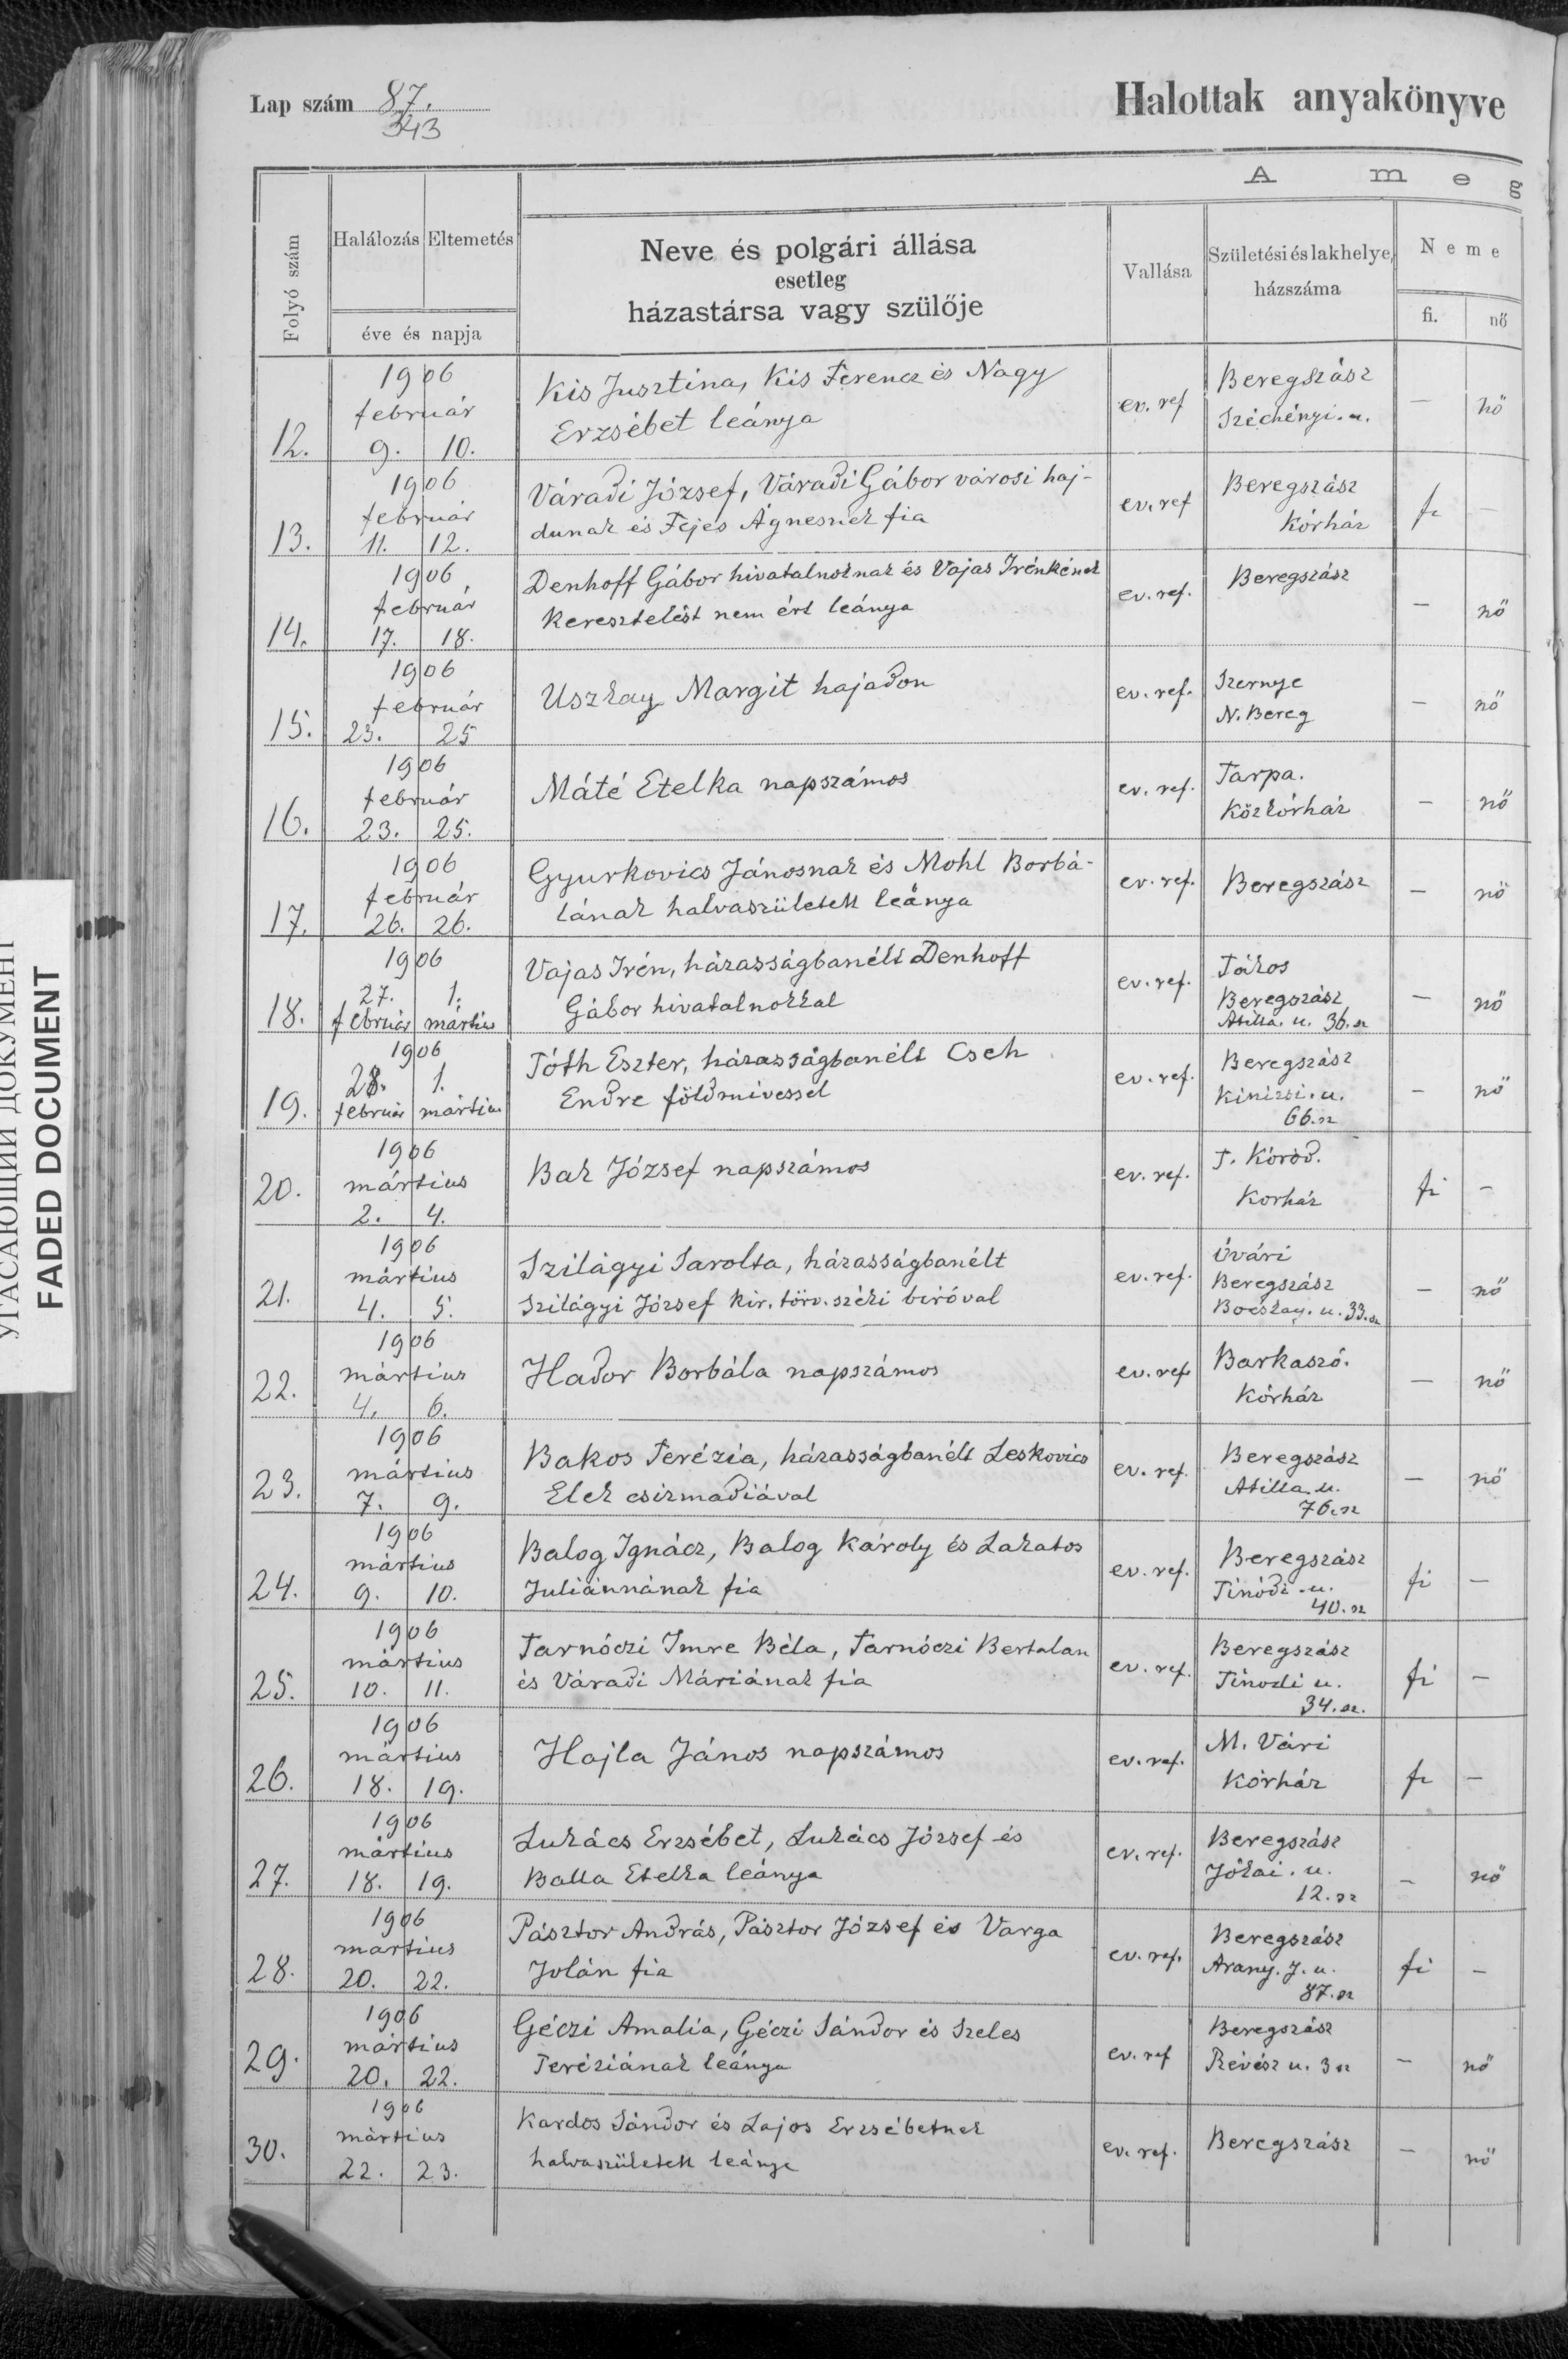 Lap szám 87.
343
Halottak anyakönyve
A m e g
Folyó szám
Halálozás
Eltemetés
éve és napja
Neve és polgári állása
esetleg
házastársa vagy szülője
Vallása
Születési és lakhelye,
házszáma
Neme
fi.
nő
12.
1906
február
9. 10.
Kis Jusztina, Kis Ferencz és Nagy
Erzsébet leánya
ev. ref
Beregszász
Széchényi. u.
— nő
13.
1906
február
11. 12.
Váradi József, Váradi Gábor városi haj-
dunak és Fejes Ágnesnek fia
ev. ref
Beregszász
Kórház
fi —
14.
1906
február
17. 18.
Denhoff Gábor hivatalnoknak és Vajas Irénkének
keresztelést nem ért leánya
ev. ref.
Beregszász
— nő
15.
1906
február
23. 25
Uszkay Margit hajadon
ev. ref.
Szernye
N. Bereg
— nő
16.
1906
február
23. 25.
Máté Etelka napszámos
ev. ref.
Tarpa.
Közkórház
— nő
17.
1906
február
26. 26.
Gyurkovics Jánosnak és Mohl Borbá-
lának halvaszületett leánya
ev. ref.
Beregszász
— nő
18.
1906
27. 1.
február mártius
Vajas Irén, házasságbanélt Denhoff
Gábor hivatalnokkal
ev. ref.
Tákos
Beregszász
Atilla. u. 36. sz
— nő
19.
1906
28. 1.
február mártius
Tóth Eszter, házasságbanélt Cseh
Endre földmivessel
ev. ref.
Beregszász
Kinizsi. u.
66. sz
— nő
20.
1906
mártius
2. 4.
Bak József napszámos
ev. ref.
T. Kóród.
Korház
fi —
21.
1906
mártius
4. 5.
Szilágyi Sarolta, házasságbanélt
Szilágyi József kir. törv. széki biróval
ev. ref.
Óvári
Beregszász
Bocskay. u. 33. sz
— nő
22.
1906
mártius
4. 6.
Hador Borbála napszámos
ev. ref
Barkaszó.
Kórház
— nő
23.
1906
mártius
7. 9.
Bakos Terézia, házasságbanélt Leskovics
Elek csizmadiával
ev. ref.
Beregszász
Atilla u.
76. sz
— nő
24.
1906
mártius
9. 10.
Balog Ignácz, Balog Károly és Lakatos
Juliánnának fia
ev. ref.
Beregszász
Tinódi. u.
40. sz
fi —
25.
1906
mártius
10. 11.
Tarnóczi Imre Béla, Tarnóczi Bertalan
és Váradi Máriának fia
ev. ref.
Beregszász
Tinodi u.
34. sz.
fi —
26.
1906
mártius
18. 19.
Hajla János napszámos
ev. ref.
M. Vári
Kórház
fi —
27.
1906
mártius
18. 19.
Lukács Erzsébet, Lukács József és
Balla Etelka leánya
ev. ref.
Beregszász
Jókai. u.
12. sz
— nő
28.
1906
martius
20. 22.
Pásztor András, Pásztor József és Varga
Jolán fia
ev. ref.
Beregszász
Arany. J. u.
87. sz
fi —
29.
1906
mártius
20. 22.
Géczi Amalia, Géczi Sándor és Szeles
Teréziának leánya
ev. ref
Beregszász
Révész u. 3 sz
— nő
30.
1906
mártius
22. 23.
Kardos Sándor és Lajos Erzsébetnek
halvaszületett leánya
ev. ref.
Beregszász
— nő
УГАСАЮЩИЙ ДОКУМЕНТ
FADED DOCUMENT